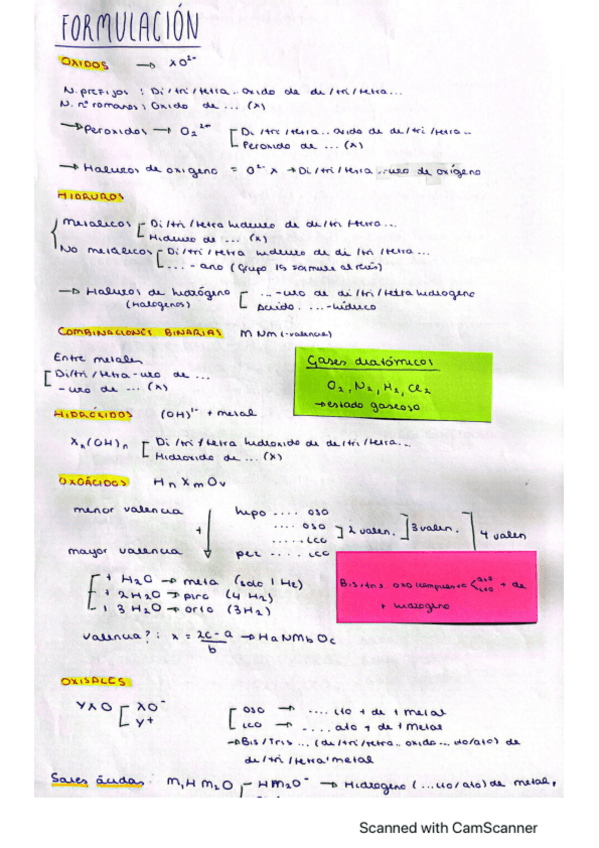 FORMULACIÓN
OXIDOS → XO²⁻
N. prefijos : Di/tri/tetra.. oxido de di/tri/tetra...
N. nº romanos : Oxido de ... (x)
→ Peroxidos → O₂²⁻ [ Di/tri/tetra.. oxido de di/tri/tetra..
Peroxido de ... (x)
→ Haluros de oxigeno = O²⁻ X → Di/tri/tetra ..uro de oxígeno
HIDRUROS
Metalicos [ Di/tri/tetra hidruro de di/tri/tetra...
Hidruro de ... (x)
No metalicos [ Di/tri/tetra hidruro de di/tri/tetra...
... - ano (Grupo 15 al revés)
→ Haluros de hidrógeno [ ... -uro de di/tri/tetra hidrogeno
(Halogenos) Acido. ... -hídrico
COMBINACIONES BINARIAS M Nm (-valencia)
Entre metales
[ Di/tri/tetra -uro de ...
- uro de ... (x)
Gases diatómicos
O₂, N₂, H₂, Cl₂
→ estado gaseoso
HIDRÓXIDOS (OH)¹⁻ + metal
Xₙ(OH)ₙ [ Di/tri/tetra hidroxido de di/tri/tetra...
Hidroxido de ... (x)
OXOÁCIDOS Hn Xm Ov
menor valencia hipo .... oso
+ .... oso ] 2 valen. ] 3 valen. ] 4 valen
.... ico
mayor valencia per .... ico
[ + H₂O → meta (solo 1 H₂)
+ 2H₂O → piro (4 H₂)
+ 3H₂O → orto (3H₂)
Bis/tris oxo < ato + de
+ hidrogeno
valencia? : x = 2c - a / b → Ha NMb Oc
OXISALES
YXO [ XO⁻
Y⁺
[ OSO → .... ito + de + metal
ICO → .... ato + de + metal
→ Bis/Tris ... (di/tri/tetra.. oxido... ito/ato) de
di/tri/tetra metal
Sales ácidas : M₁ H M₂O → HM₂O⁻ → Hidrogeno (...ito/ato) de metal,
Scanned with CamScanner